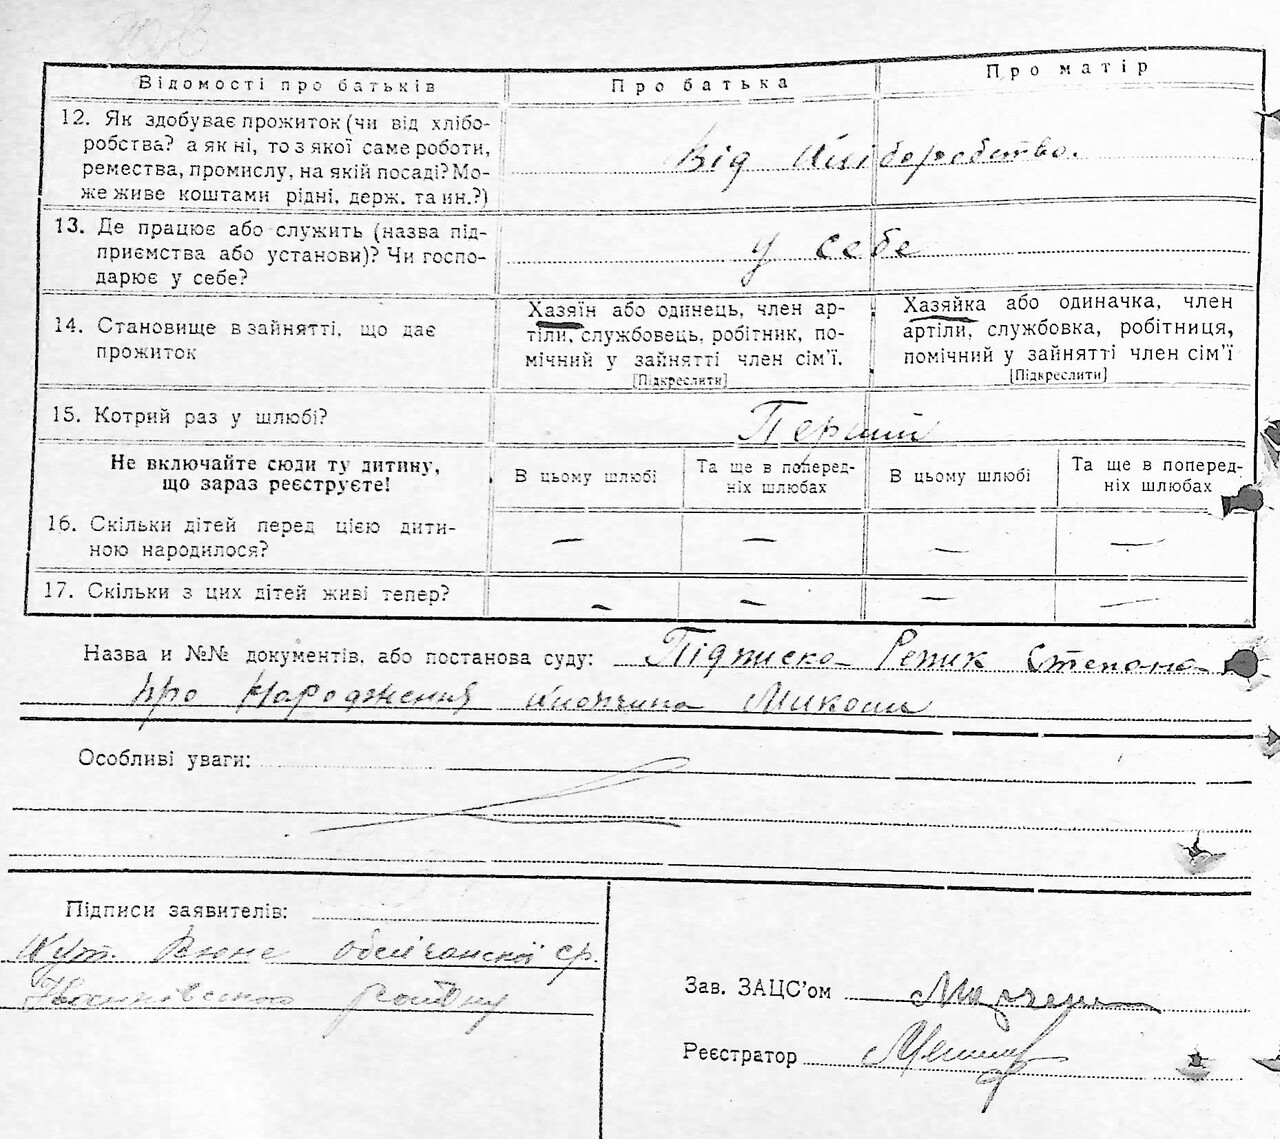 Відомості про батьків
Про батька
Про матір
12. Як здобуває прожиток (чи від хлібо-
робства? а як ні, то з якої саме роботи,
ремества, промислу, на якій посаді? Мо-
же живе коштами рідні, держ. та ин.?)
Від хліборобства.
13. Де працює або служить (назва під-
приємства або установи)? Чи госпо-
дарює у себе?
у себе
14. Становище в зайнятті, що дає
прожиток
Хазяїн або одинець, член ар-
тіли, службовець, робітник, по-
мічний у зайнятті член сім'ї.
[Підкреслити]
Хазяйка або одиначка, член
артіли, службовка, робітниця,
помічний у зайнятті член сім'ї
[Підкреслити]
15. Котрий раз у шлюбі?
Перший
Не включайте сюди ту дитину,
що зараз реєструєте!
В цьому шлюбі
Та ще в поперед-
ніх шлюбах
В цьому шлюбі
Та ще в поперед-
ніх шлюбах
16. Скільки дітей перед цією дити-
ною народилося?
— — — —
17. Скільки з цих дітей живі тепер?
— — — —
Назва и №№ документів, або постанова суду: Підписка Репик Степана
про народження хлопчика Миколи
Особливі уваги:
Підписи заявителів:
хут. Вюне Обсічанскої ср.
району
Зав. ЗАЦС'ом
Реєстратор